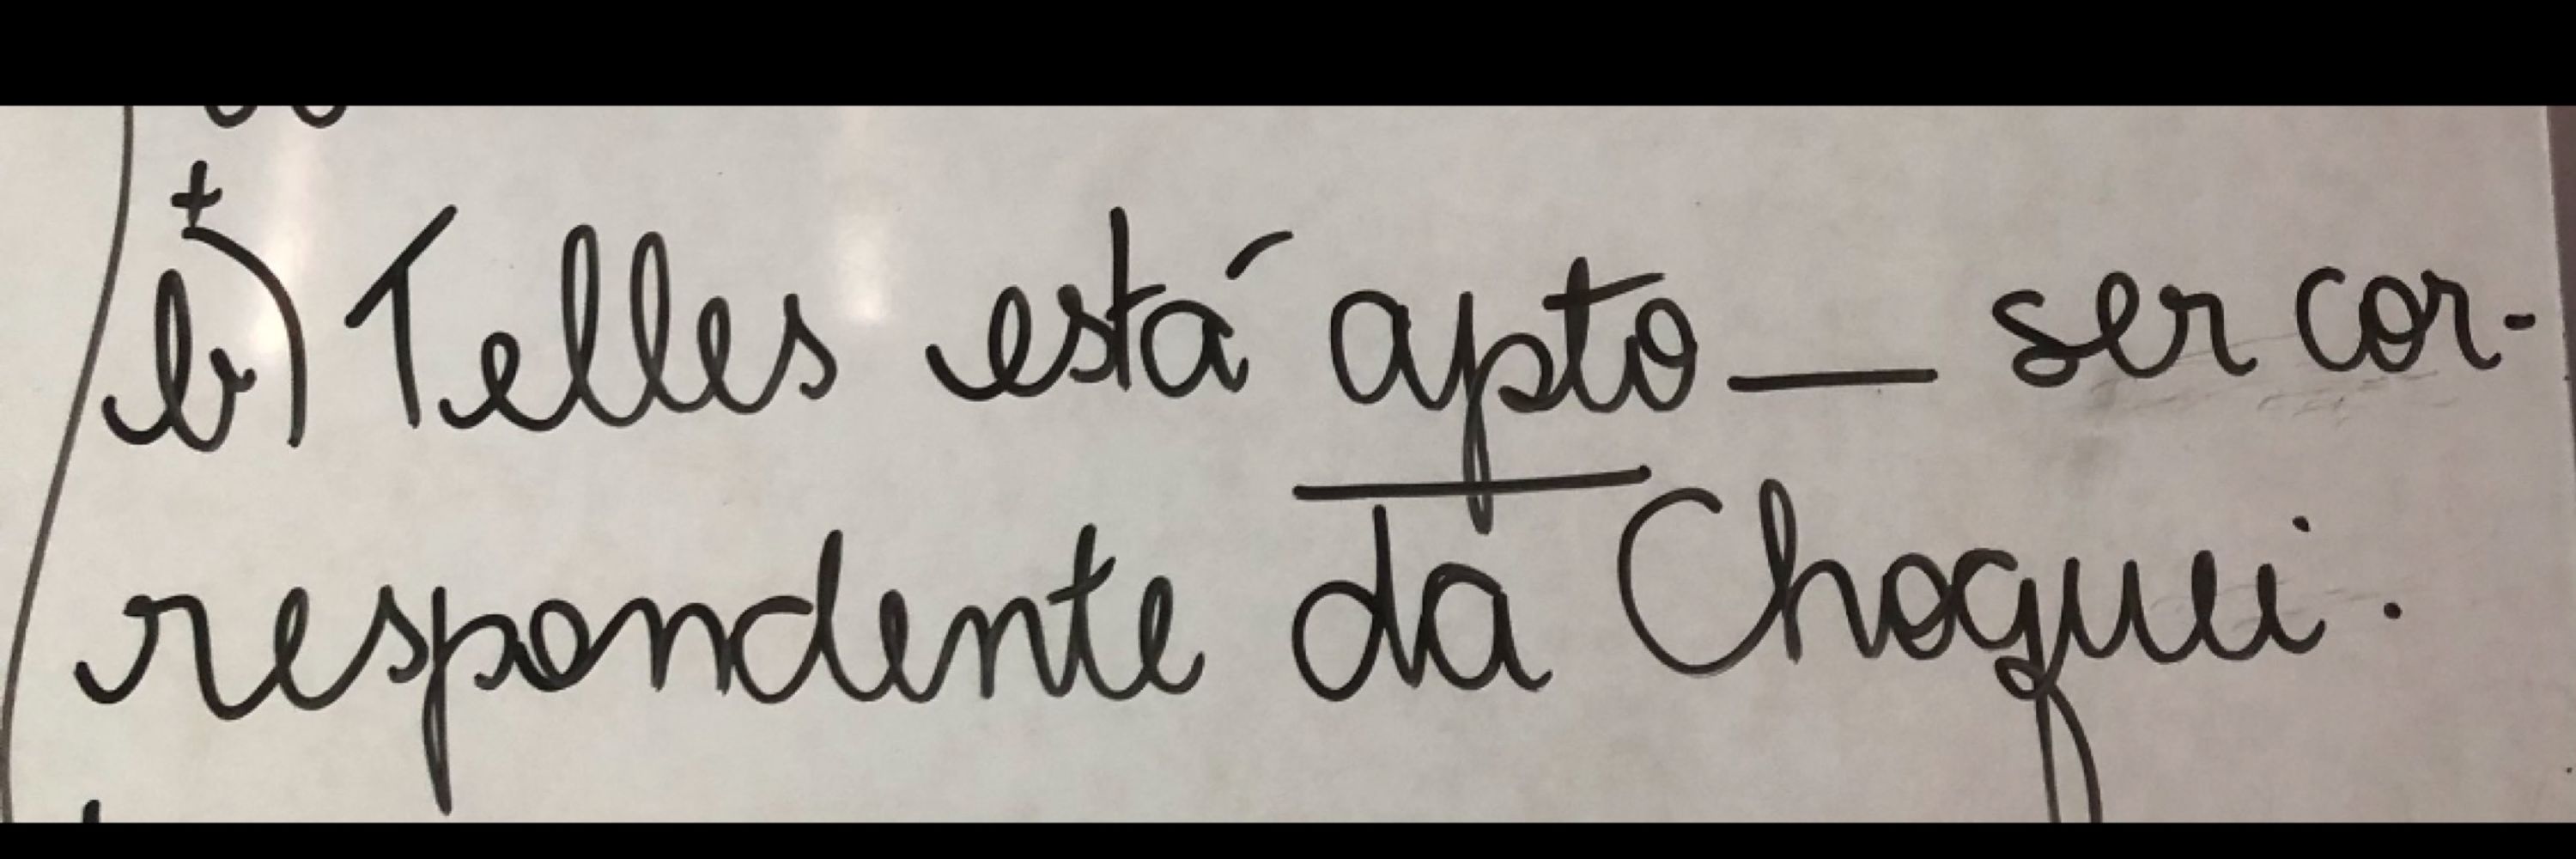 b) Telles está apto __ ser cor-
respondente da Choquei.